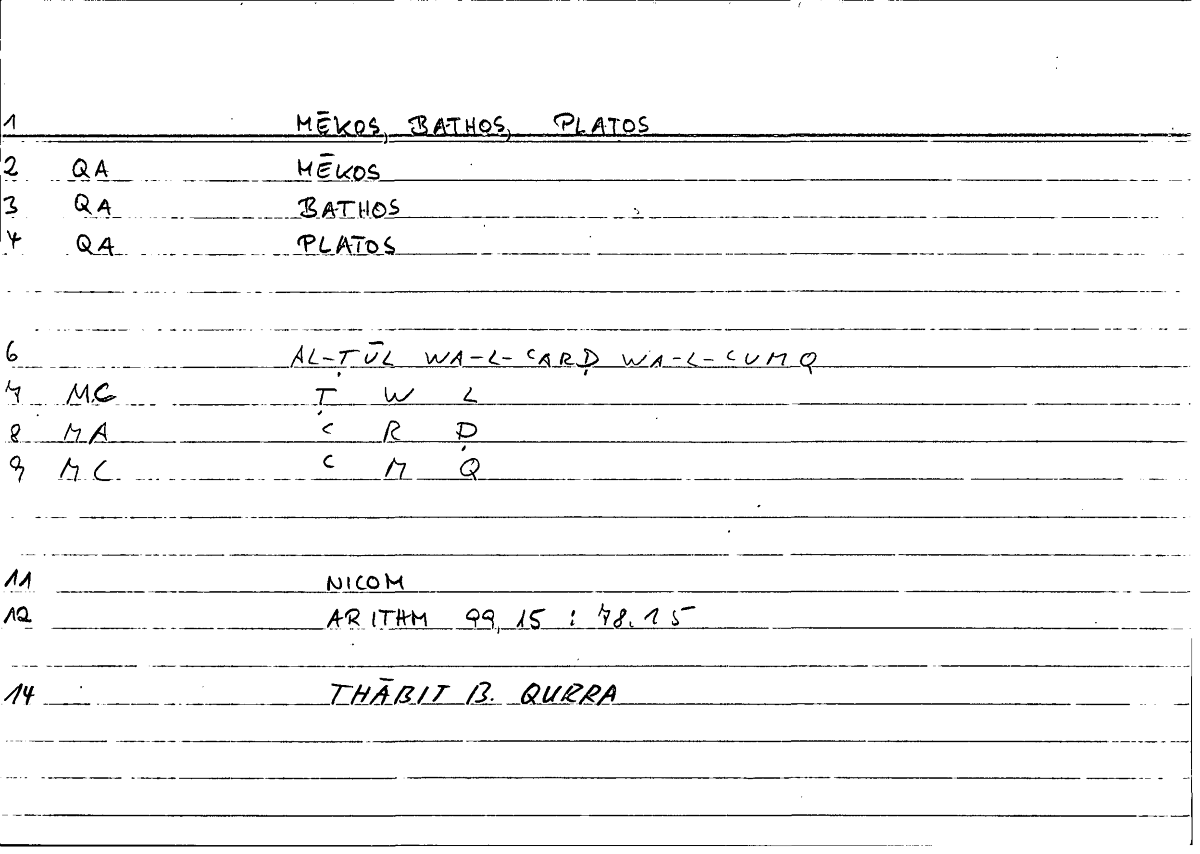 1 MĒKOS, BATHOS, PLATOS
2 QA MĒKOS
3 QA BATHOS
4 QA PLATOS
6 AL-ṬŪL WA-L-ʿARḌ WA-L-ʿUMQ
7 MC Ṭ W L
8 MA ʿ R Ḍ
9 MC ʿ M Q
11 NICOM
12 ARITHM 99,15 : 78.15
14 THĀBIT B. QURRA